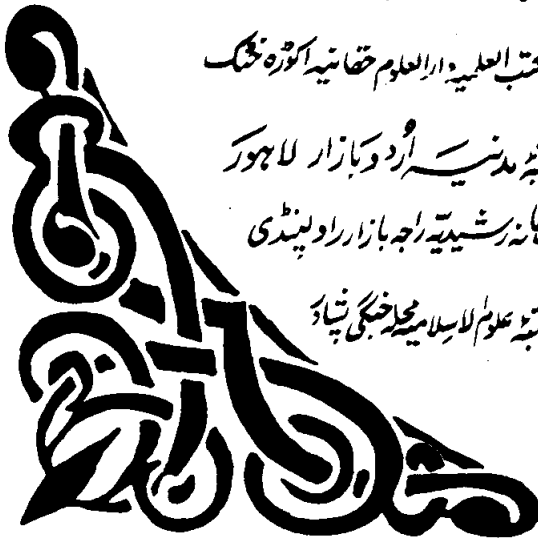 العلمیہ دارالعلوم حقانیہ اکوڑہ خٹک
مدنیہ اُردو بازار لاہور
رشیدیہ راجہ بازار راولپنڈی
علوم الاسلامیہ محلہ جنگی پشاور